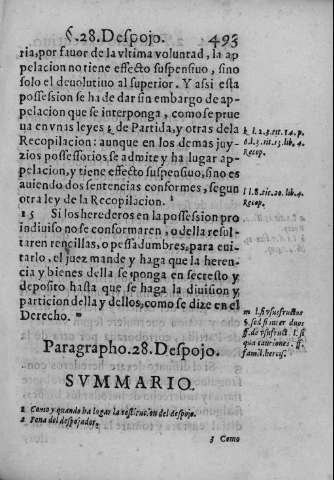 §.28.Despojo. 493
ria, por fauor de la vltima voluntad, la ap
pelacion no tiene effecto suspensiuo, sino
solo el deuolutiuo al superior. Y assi esta
possession se ha de dar sin embargo de ap-
pelacion que se interponga, como se prue
ua en vnas leyes k de Partida, y otras de la
Recopilacion: aunque en los demas juy-
zios possessorios se admite y ha lugar ap-
pelacion, y tiene effecto suspensiuo, sino es
auiendo dos sentencias conformes, segun
otra ley de la Recopilacion. l
15 Si los herederos en la possession pro
indiuiso no se conformaren, o della resul-
taren renzillas, o pessadumbres, para eui-
tarlo, el juez mande y haga que la heren-
cia y bienes della se ponga en secresto y
deposito hasta que se haga la diuision y
particion della y dellos, como se dize en el
Derecho. m
k l.2.3.tit.14.p.
lib. 4.
Recop.
l l.8.tit.20. lib. 4.
Recop.
m l. si vsufructus
ff. de vsufruct. l. si
ff.
famil. hercis.
Paragrapho.28.Despojo.
SVMMARIO.
1 Como y quando ha lugar la restitucion del despojo.
2 Pena del despojador.
3 Como